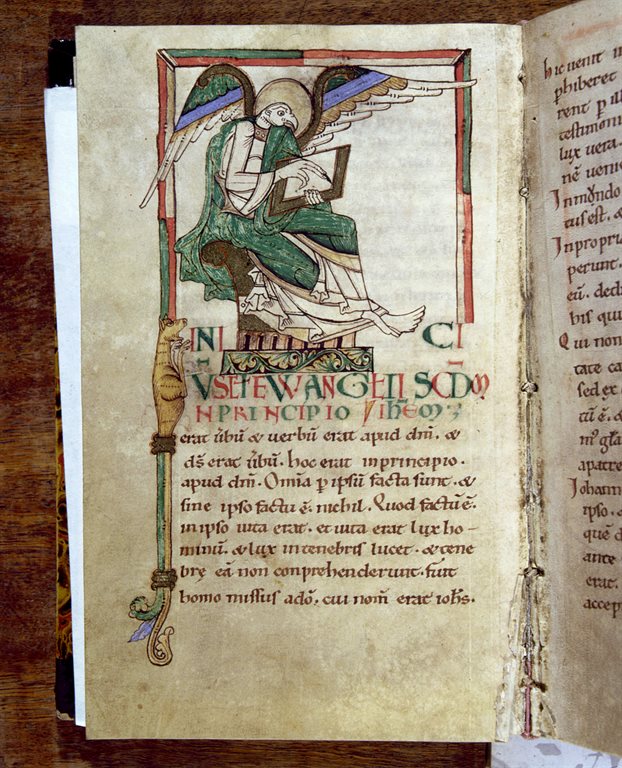 INI CI
VSETEWANGELII SCDM
NPRINCIPIO IOHEM
erat ūbū & verbū erat apud dm̄. &
ds̄ erat ūbū. hoc erat inprincipio.
apud dm̄. Om̄ia p ipsū facta sunt. &
sine ipso factū ē. nichil. Quod factū ē.
in ipso uita erat. et uita erat lux ho-
minū. & lux in tenebris lucet. & tene
bre eā non conprehenderunt. fuit
homo missus ado. cui nom̄ erat iohs̄.
hic uenit
phiberet
rent p ill
testimoni
lux uera.
nē ueni
In mundo
tus est. &
In propri
perunt.
eū. dedi
bis qui
Qui non
tate ca
sed ex
tū ē. &
m̄ glā
apatre
Johann
ipso.
quē d
ante
erat.
accep